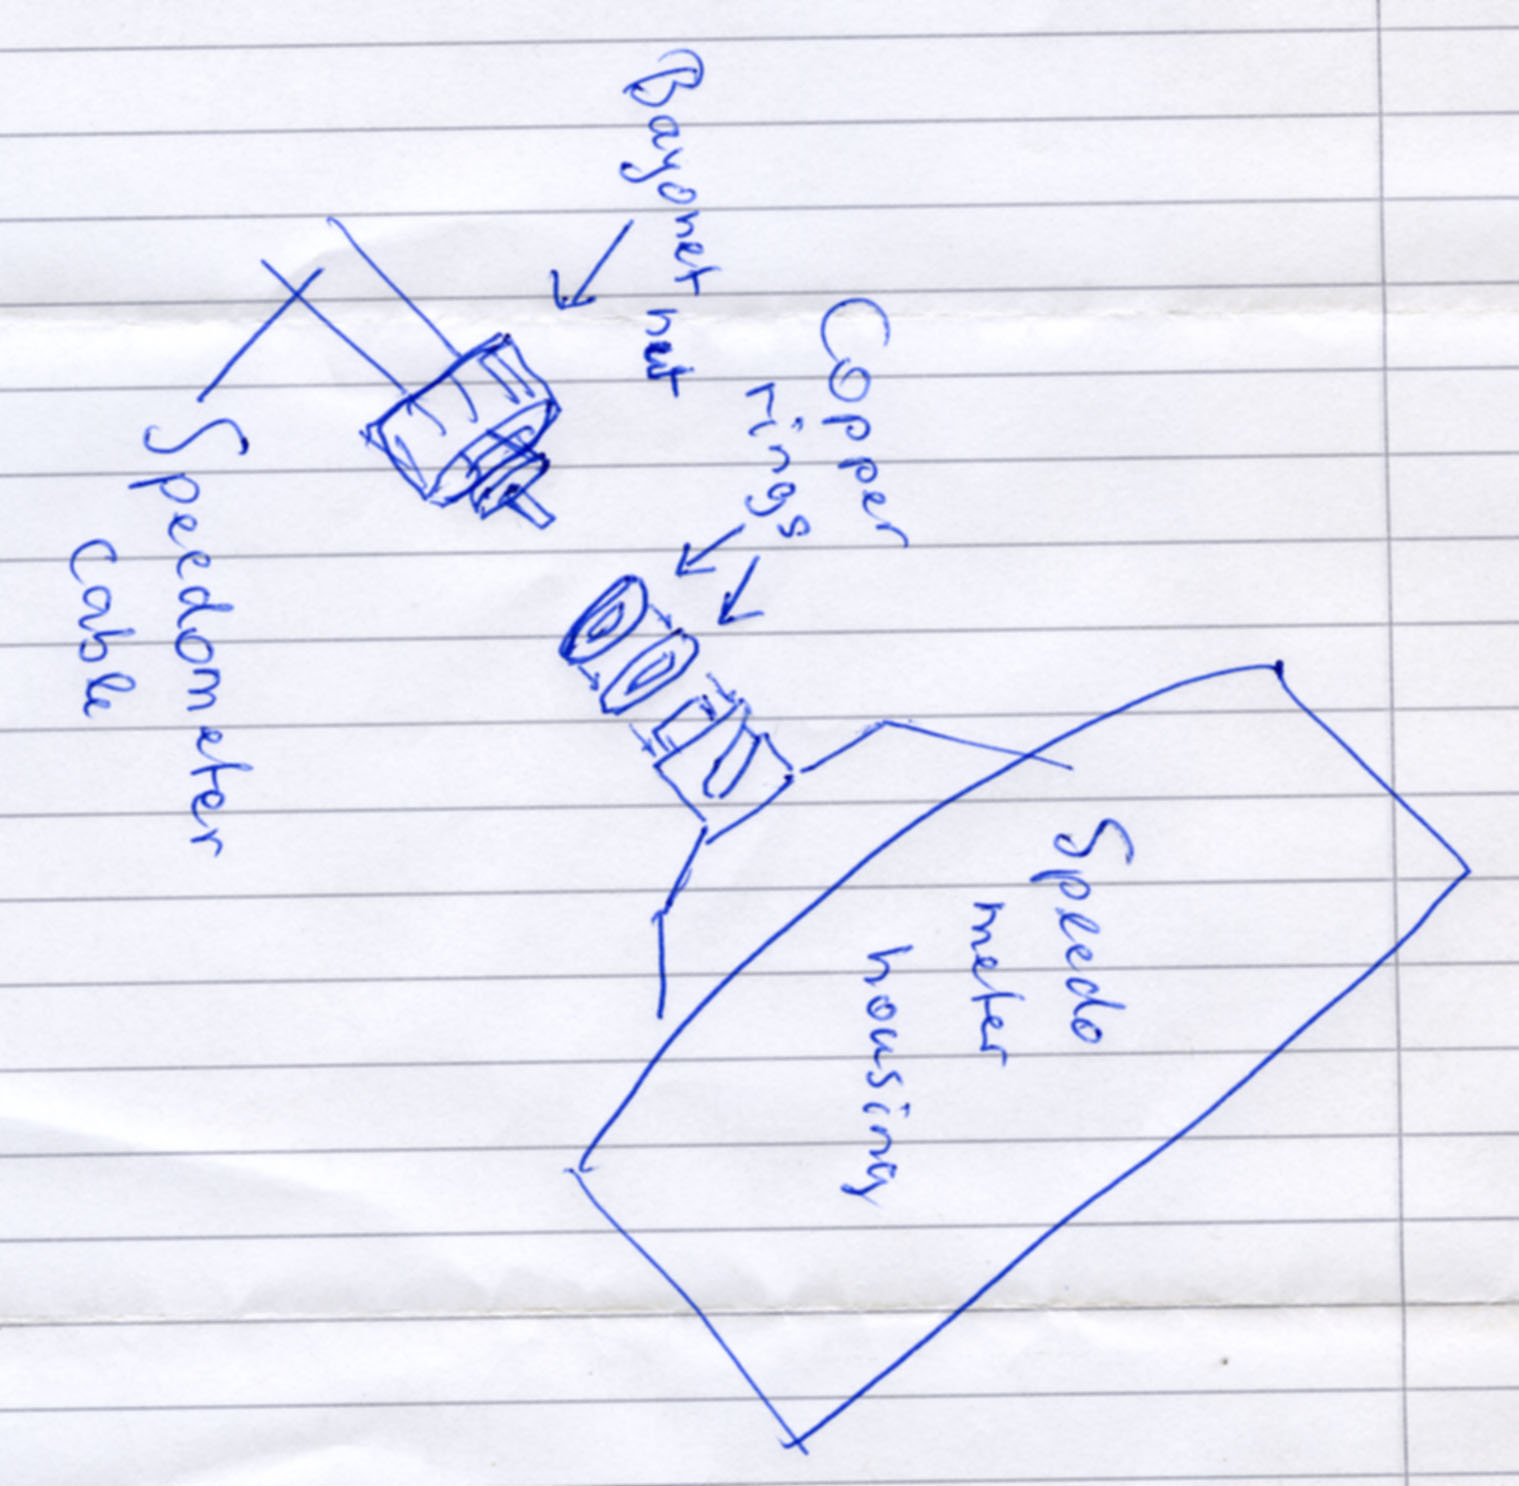 Bayonet nut
Copper
rings
Speedometer
Cable
Speedo
meter
housing